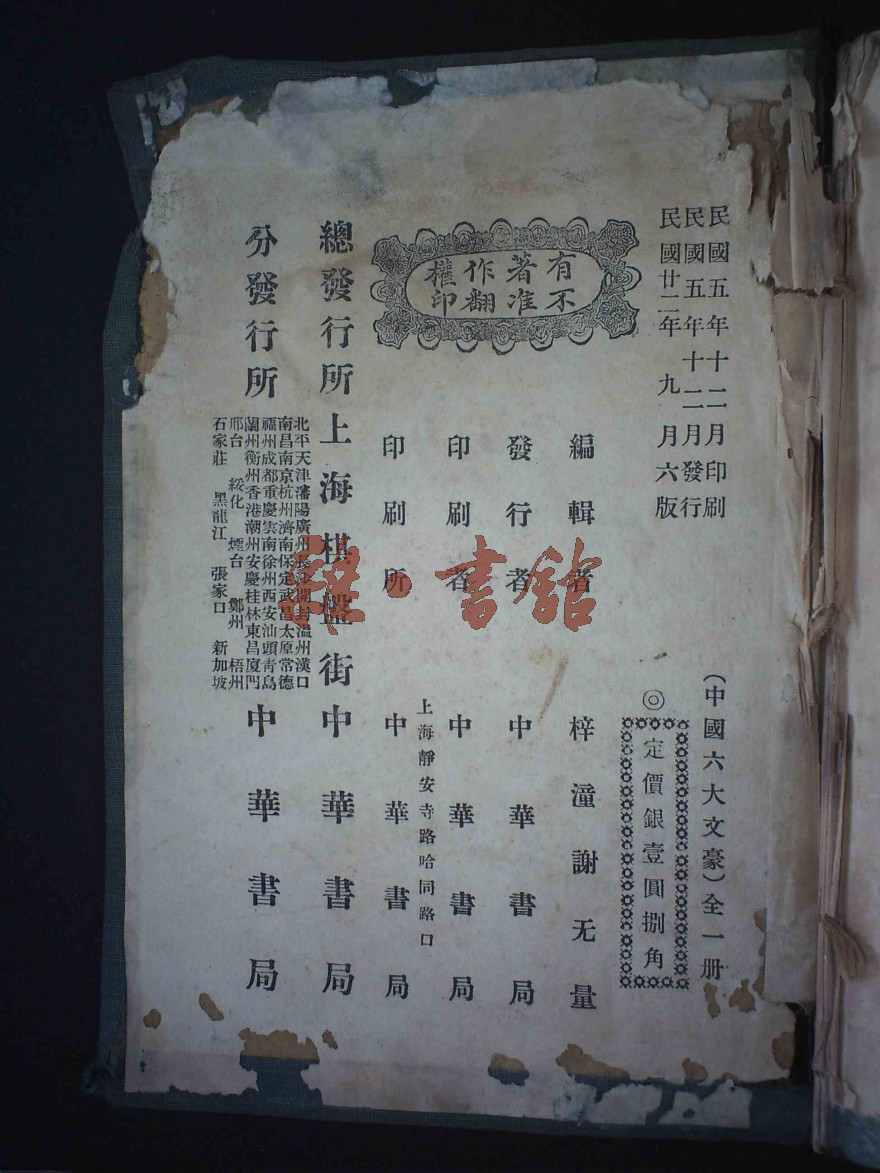 民國五年十二月印刷
民國五年十二月發行
民國廿二年九月六版
(中國六大文豪)全一册
◎定價銀壹圓捌角
有著作權
不准翻印
編輯者 梓潼謝无量
發行者 中華書局
印刷者 中華書局
上海靜安寺路哈同路口
印刷所 中華書局
總發行所 上海棋盤街 中華書局
分發行所
北平天津瀋陽廣州長沙開封溫州漢口
南昌南京杭州濟南保定武昌太原常德
福州成都重慶雲南徐州西安汕頭青島
蘭州衡州香港潮州安慶桂林東昌廈門
邢台 綏化 煙台 鄭州 梧州
石家莊 黑龍江 張家口 新加坡
中華書局
書館